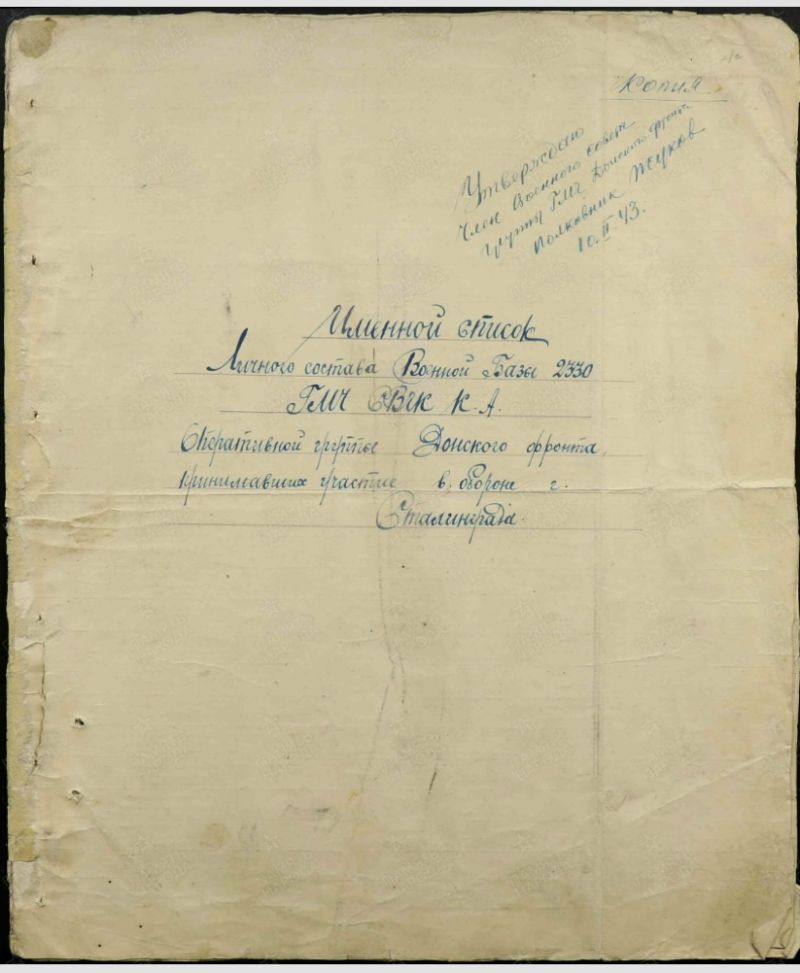 Копия
Утверждаю
Член Военного совета
группы ГМЧ Донского фронта
Полковник Жуков
10.II.43.
Именной список
Личного состава Военной Базы 2330
ГМЧ СВГК К.А.
Оперативной группы Донского фронта,
принимавших участие в обороне г.
Сталинграда.